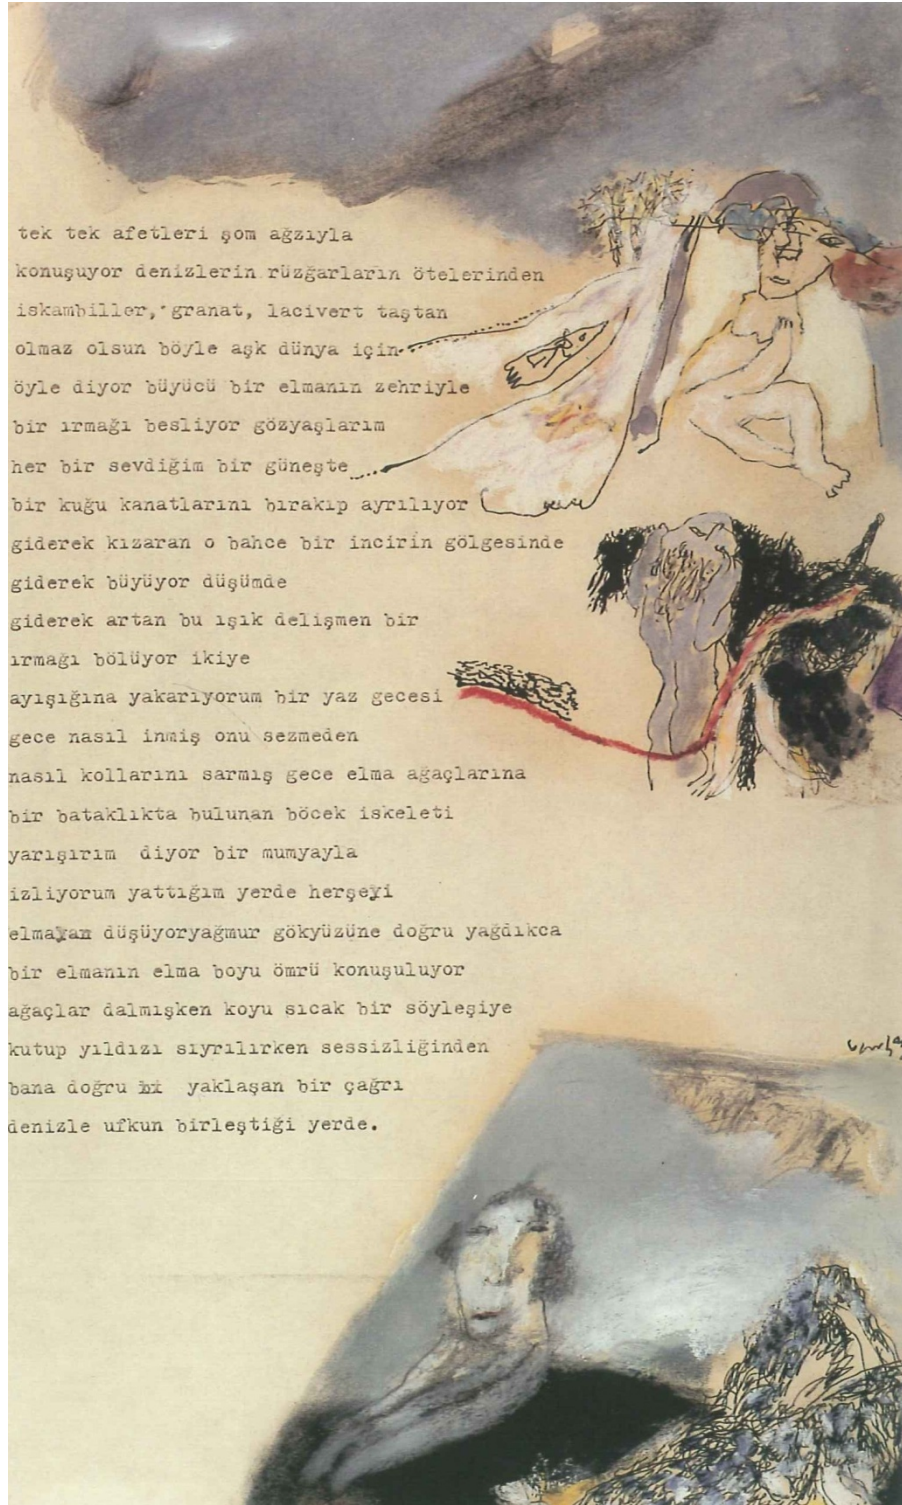 tek tek afetleri şom ağzıyla
konuşuyor denizlerin rüzğarların ötelerinden
iskambiller, granat, lacivert taştan
olmaz olsun böyle aşk dünya için
öyle diyor büyücü bir elmanın zehriyle
bir ırmağı besliyor gözyaşlarım
her bir sevdiğim bir güneşte
bir kuğu kanatlarını bırakıp ayrılıyor
giderek kızaran o bahce bir incirin gölgesinde
giderek büyüyor düşümde
giderek artan bu ışık delişmen bir
ırmağı bölüyor ikiye
ayışığına yakarıyorum bir yaz gecesi
gece nasıl inmiş onu sezmeden
nasıl kollarını sarmış gece elma ağaçlarına
bir bataklıkta bulunan böcek iskeleti
yarışırım diyor bir mumyayla
izliyorum yattığım yerde herşeyi
düşüyoryağmur gökyüzüne doğru yağdıkca
bir elmanın elma boyu ömrü konuşuluyor
ağaçlar dalmışken koyu sıcak bir söyleşiye
kutup yıldızı sıyrılırken sessizliğinden
bana doğru yaklaşan bir çağrı
denizle ufkun birleştiği yerde.